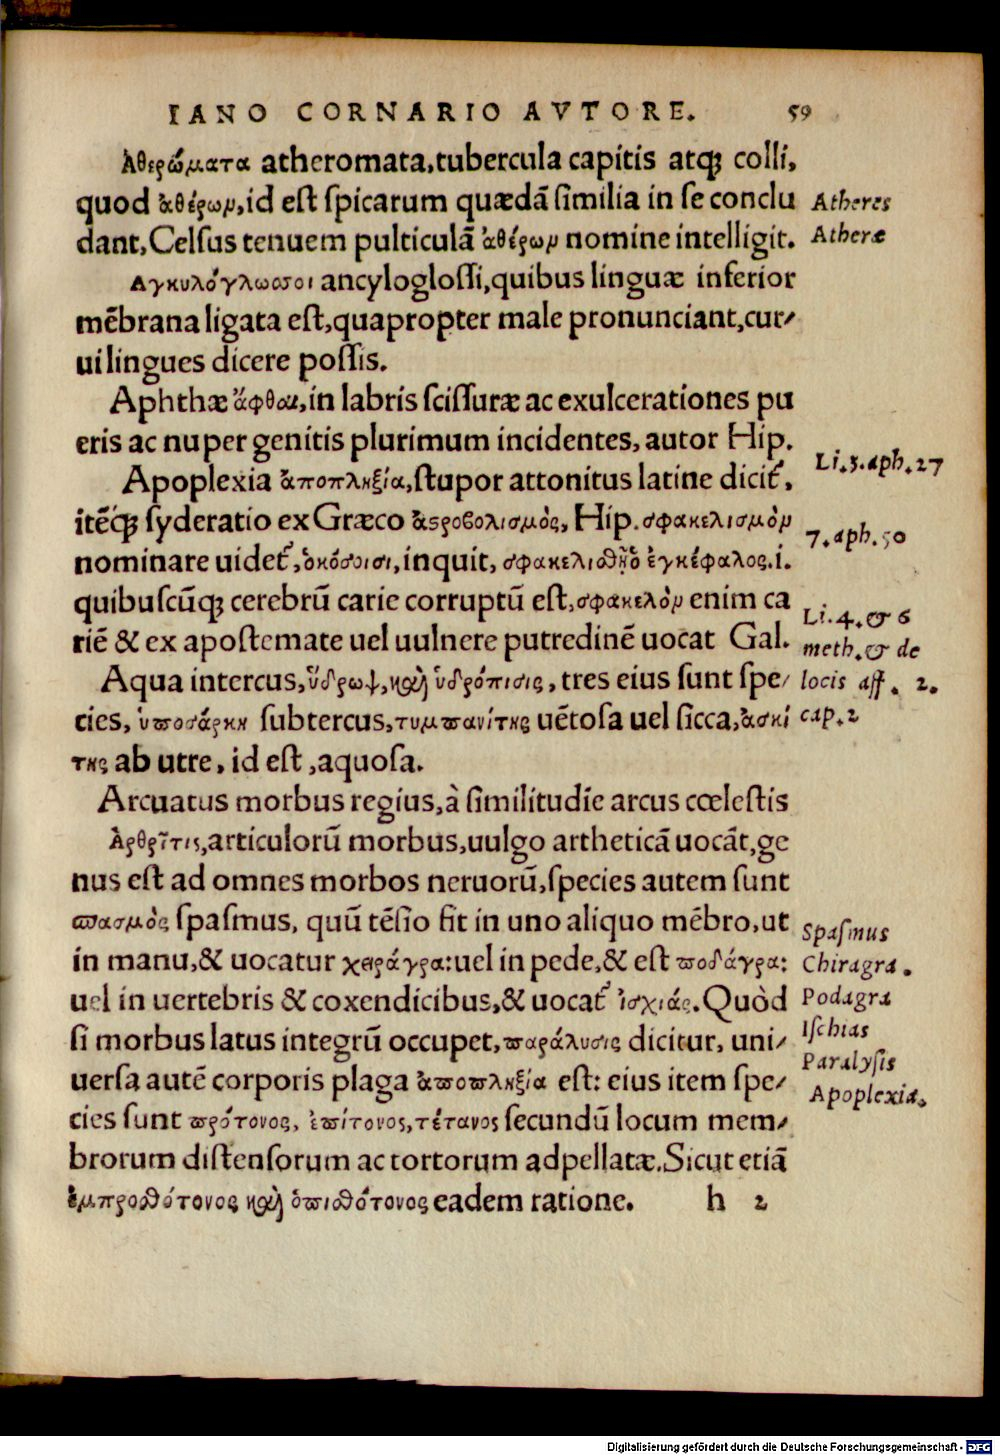 IANO CORNARIO AVTORE. 59
Ἀθερώματα atheromata, tubercula capitis atqꝫ colli,
quod ἀθέρων, id est spicarum quædã similia in se conclu
dant, Celsus tenuem pulticulã ἀθέρων nomine intelligit.
Αγκυλόγλωσσοι ancyloglossi, quibus linguæ inferior
mẽbrana ligata est, quapropter male pronunciant, cur⸗
uilingues dicere possis.
Aphthæ ἄφθαι, in labris scissuræ ac exulcerationes pu
eris ac nuper genitis plurimum incidentes, autor Hip.
Apoplexia ἀποπληξία, stupor attonitus latine dicit᷑,
itẽqꝫ syderatio ex Græco ἀϛροβολισμὸς, Hip. σφακελισμὸν
nominare uidet᷑, ὁκόσοισι, inquit, σφακελισθῇ ὁ ἐγκέφαλος. i.
quibuscũqꝫ cerebrũ carie corruptũ est, σφακελὸν enim ca
riẽ & ex apostemate uel uulnere putredinẽ uocat Gal.
Aqua intercus, ὕδρωψ, καὶ ὑδρόπισις, tres eius sunt spe⸗
cies, ὑποσάρκη subtercus, τυμπανίτης uẽtosa uel sicca, ἀσκί
της ab utre, id est, aquosa.
Arcuatus morbus regius, à similitudĩe arcus cœlestis
Ἀρθρῖτις, articulorũ morbus, uulgo artheticã uocãt, ge
nus est ad omnes morbos neruorũ, species autem sunt
σπασμὸς spasmus, quũ tẽsio fit in uno aliquo mẽbro, ut
in manu, & uocatur χειράγρα: uel in pede, & est ποδάγρα:
uel in uertebris & coxendicibus, & uocat᷑ ἰσχιάς. Quòd
si morbus latus integrũ occupet, παράλυσις dicitur, uni⸗
uersa autẽ corporis plaga ἀποπληξία est: eius item spe⸗
cies sunt πρότονος, ἐπίτονος, τέτανος secundũ locum mem⸗
brorum distensorum ac tortorum adpellatæ. Sicut etiã
ἐμπροσθότονος καὶ ὀπισθότονος eadem ratione. h 2
Atheres
Atheræ
Li. 3. aph. 27
7. aph. 50
Li. 4. & 6
meth. & de
locis aff. 2.
cap. 2
Spasmus
Chiragra.
Podagra
Ischias
Paralysis
Apoplexia.
Digitalisierung gefördert durch die Deutsche Forschungsgemeinschaft - DFG